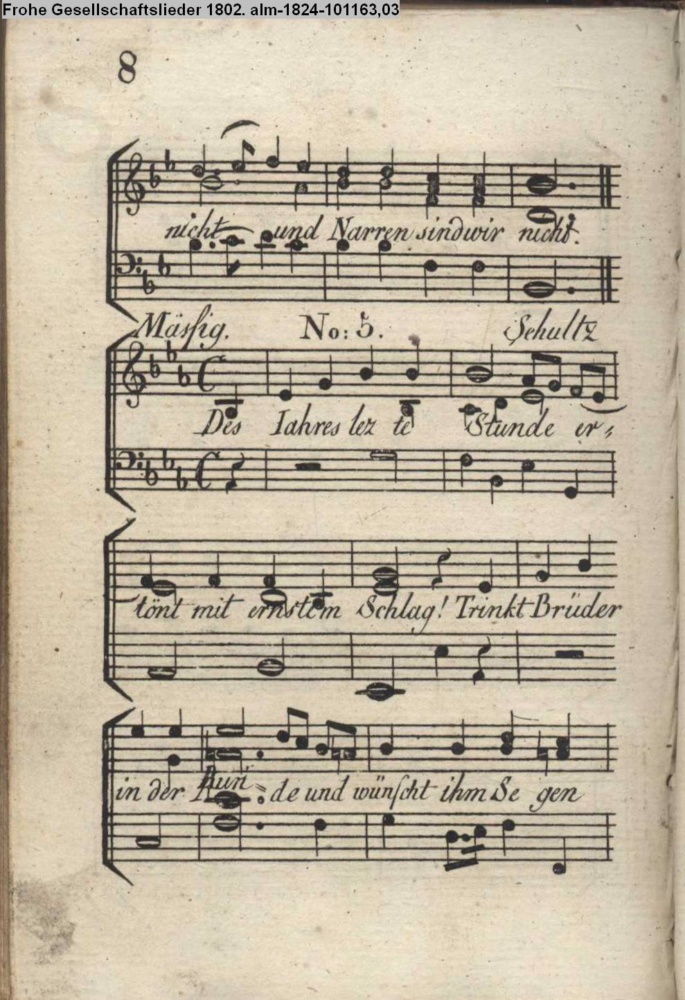 Frohe Gesellschaftslieder 1802. alm-1824-101163,03
8
nicht und Narren sind wir nicht.
Mässig. No: 5. Schultz
Des Iahres lez te Stunde er=
tönt mit ernstem Schlag! Trinkt Brüder
in der Run=de und wünscht ihm Se gen